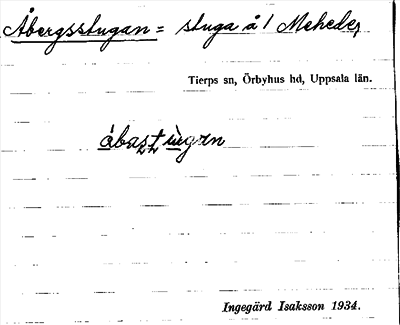 Åbergsstugan = stuga å 1 Mehede,
Tierps sn, Örbyhus hd, Uppsala län.
åbastùgan
Ingegärd Isaksson 1934.